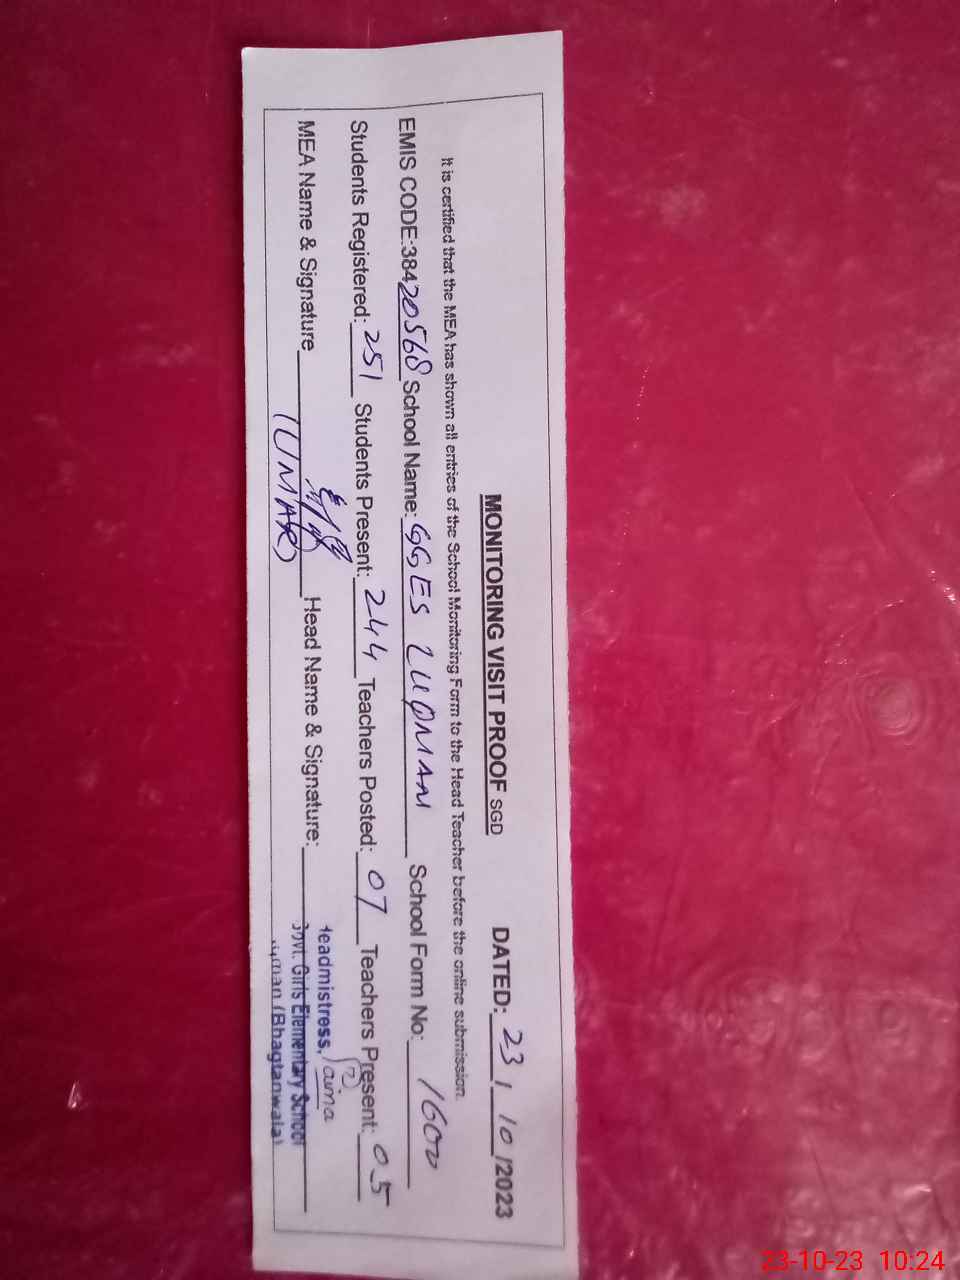 MONITORING VISIT PROOF SGD DATED: 23 / 10 /2023
It is certified that the MEA has shown all entries of the School Monitoring Form to the Head Teacher before the online submission.
EMIS CODE:38420568 School Name: GGES LUQMAN School Form No: 1600
Students Registered: 251 Students Present: 244 Teachers Posted: 07 Teachers Present: 05
MEA Name & Signature Head Name & Signature:
(UMAR)
Headmistress,
Govt. Girls Elementary School
(Bhagtanwala)
23-10-23 10:24